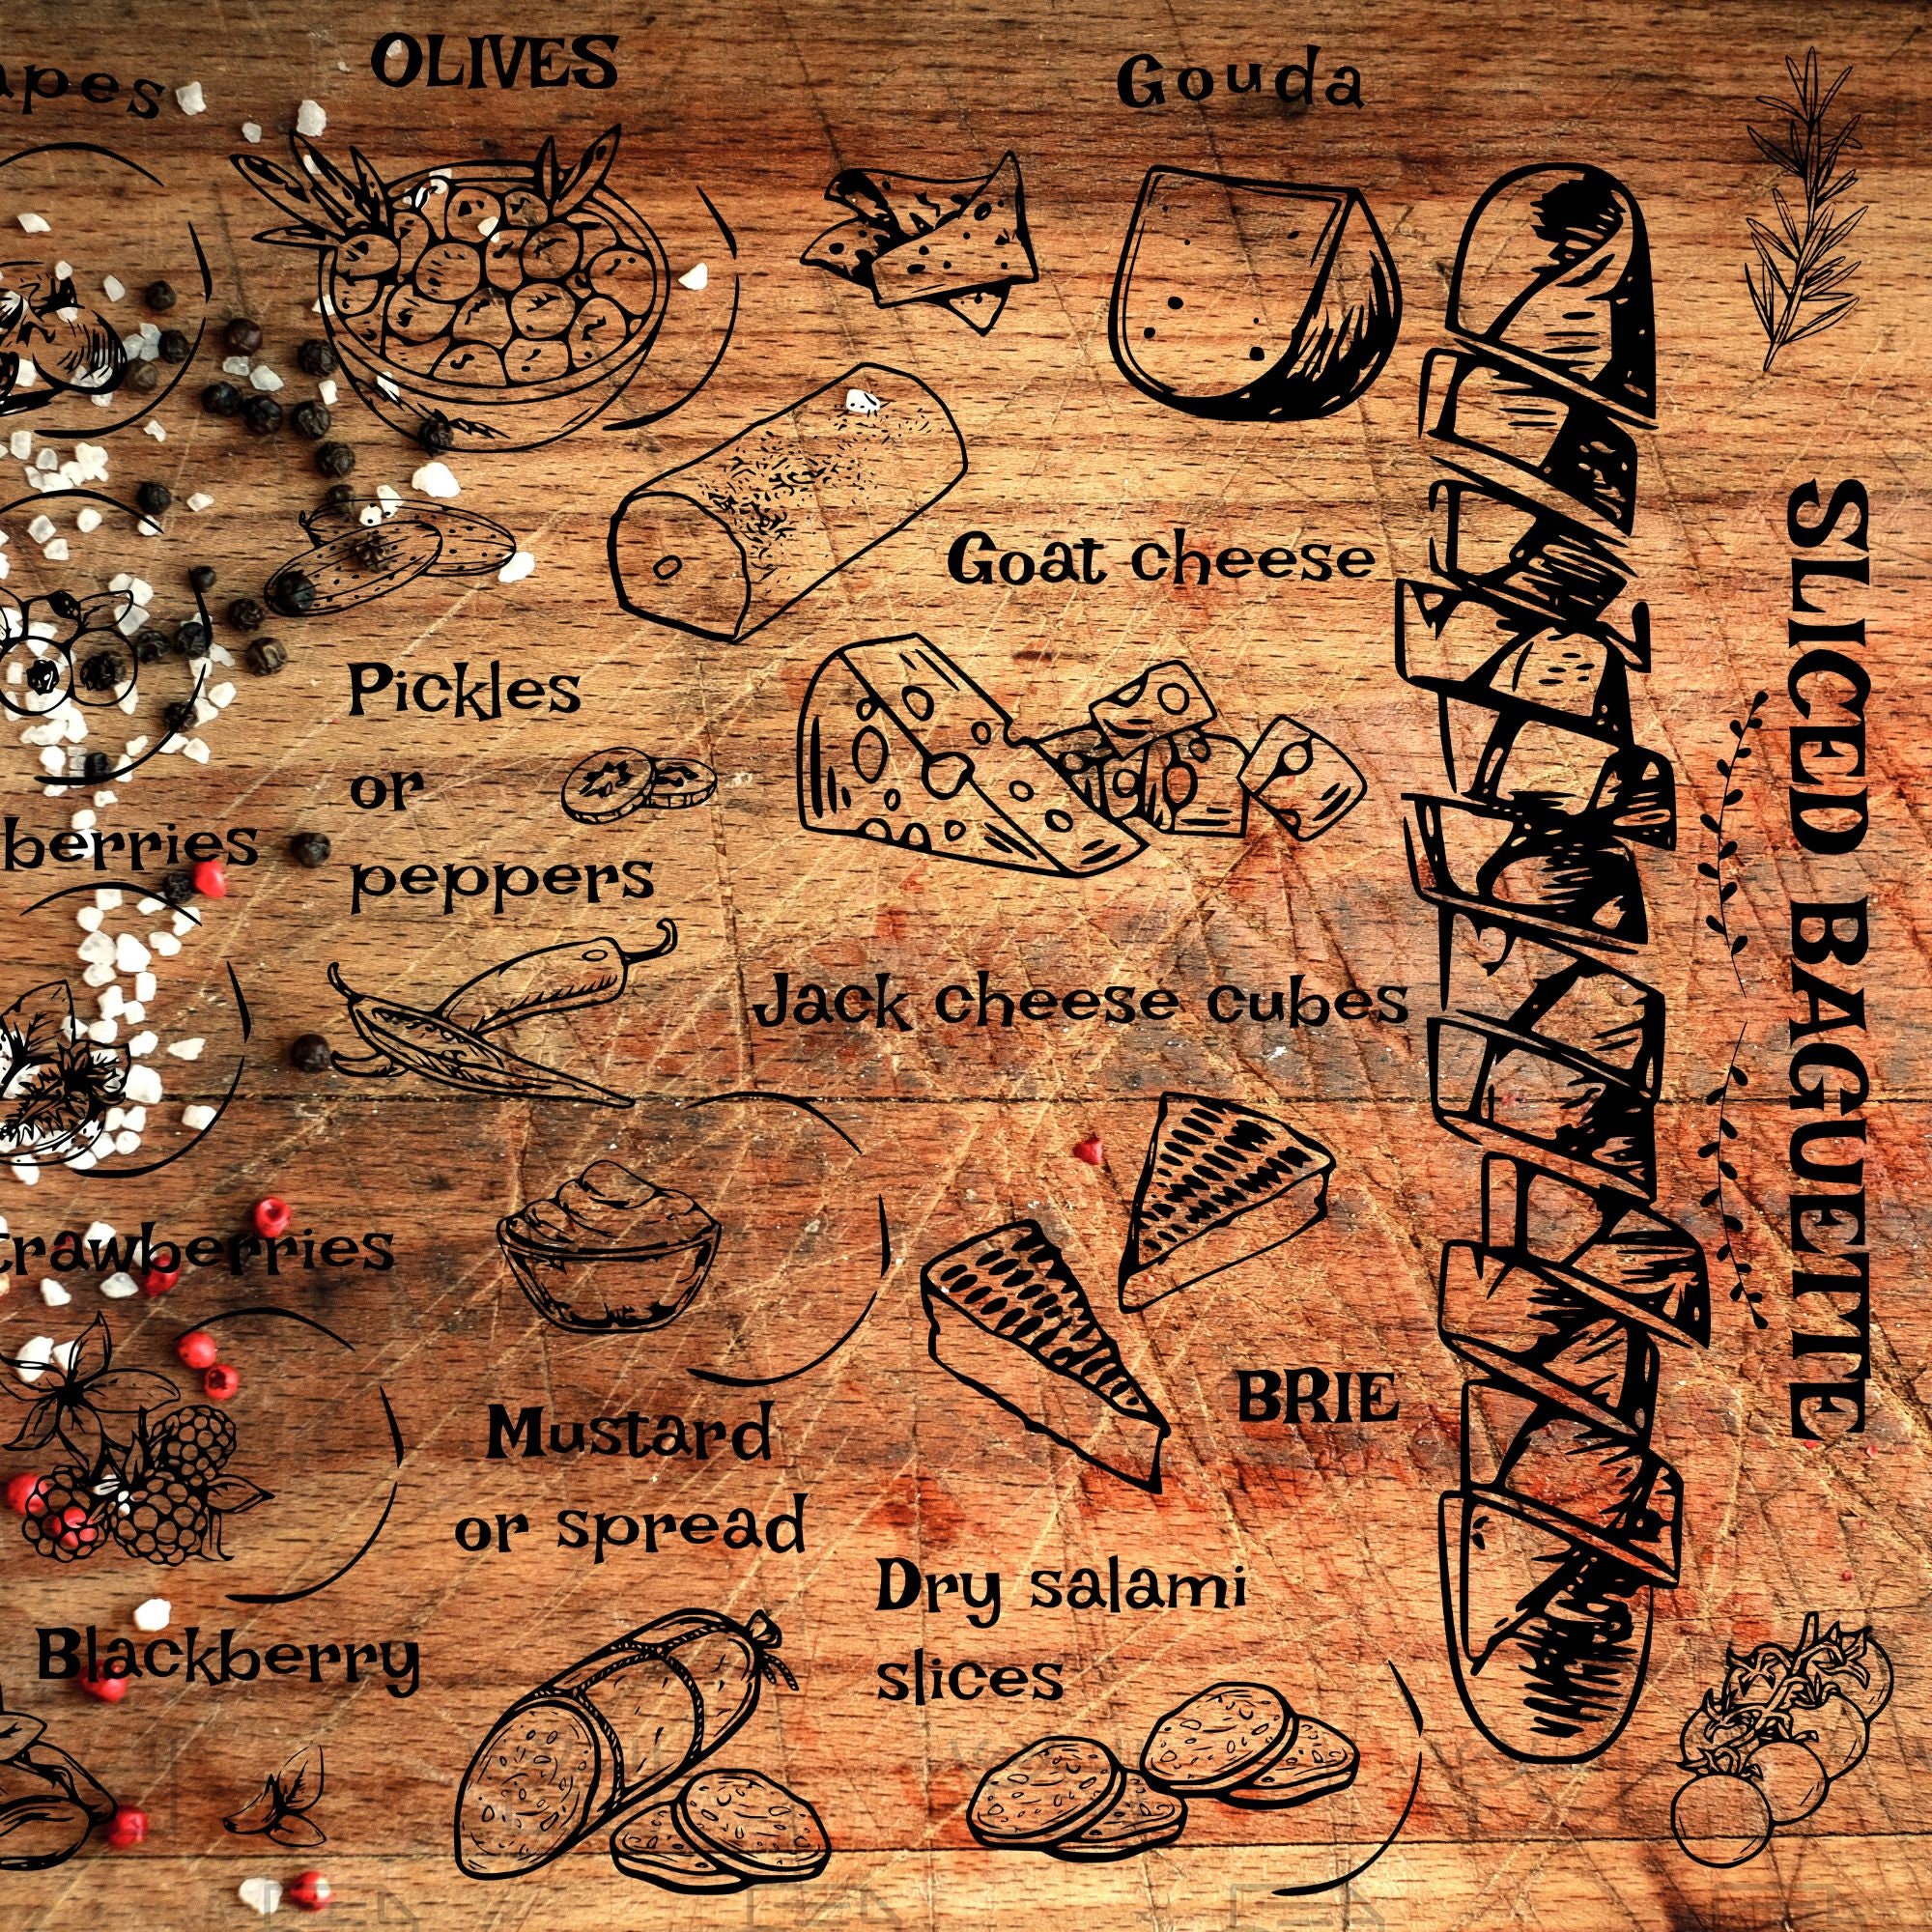 apes
OLIVES
Gouda
Goat cheese
Pickles
or
peppers
berries
Jack cheese cubes
SLICED BAGUETTE
trawberries
BRIE
Mustard
or spread
Dry salami
slices
Blackberry